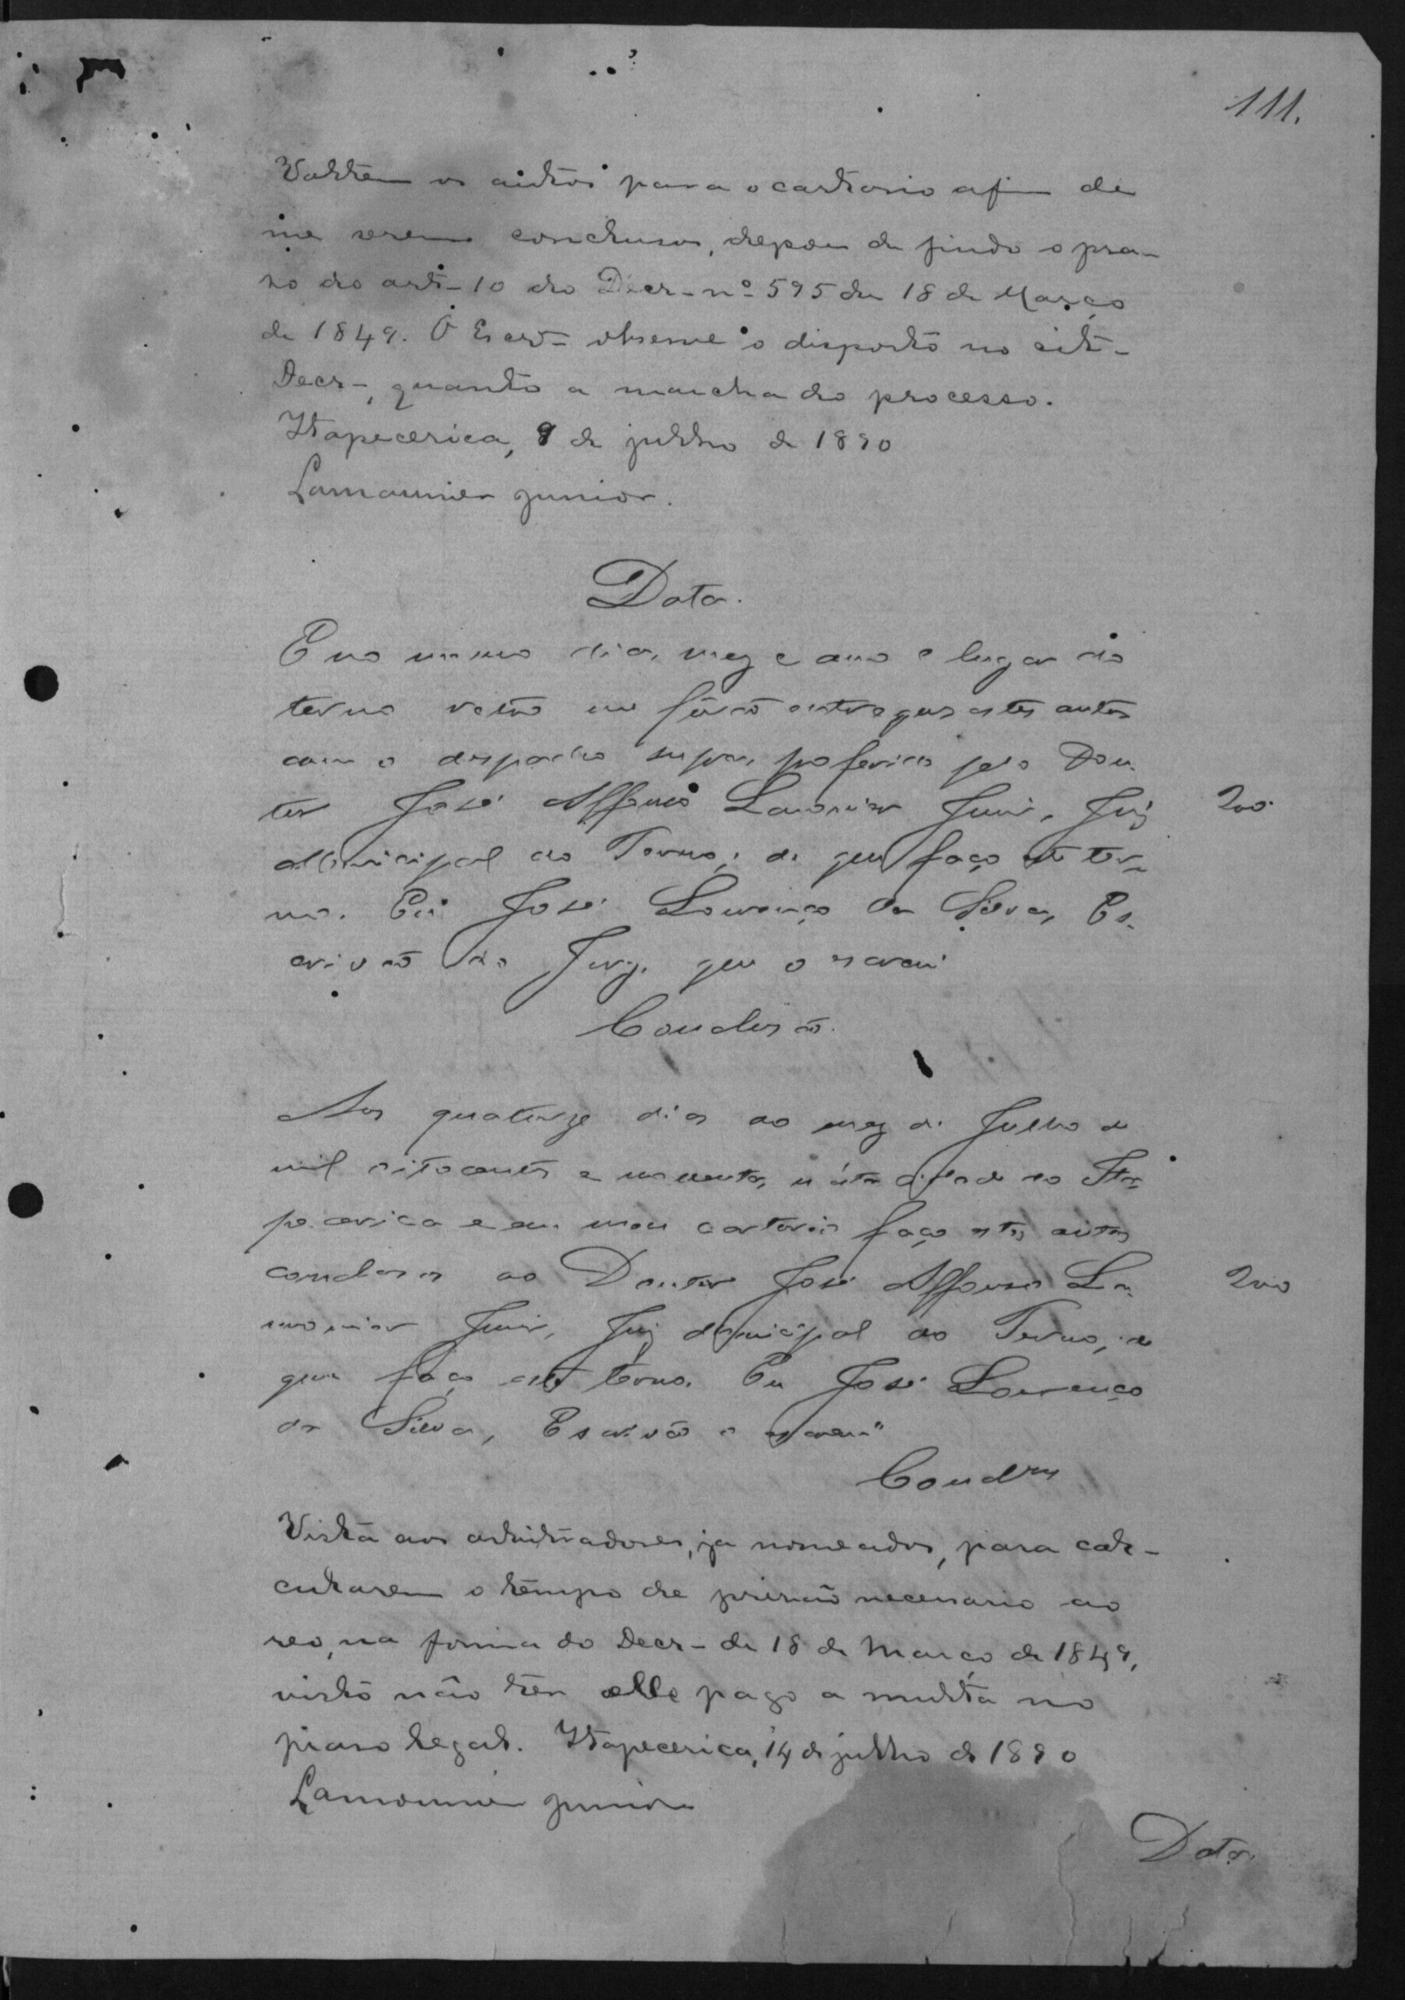 111.
Voltem os autos para o cartorio afim de
me serem conclusos, depois de findo o pra-
so do art- 10 do Decr- nº 595 de 18 de Março
de 1849. O Escr- observe o disposto no cit-
Decr-, quanto a marcha do processo.
Itapecerica, 9 de julho de 1890
Lamounier Junior.
Data.
E no mesmo dia, mez e anno e lugar do
termo retro me fôrão entregues estes autos
com o despacho supra, proferido pelo Dou-
tor José Affonso Lamonier Junior, Juiz 200
Municipal do Termo; de que faço este ter-
mo. Eu José Lourenço da Silva, Es-
crivão do Jury, que o escrevi
Conclusão.
Aos quatorze dias do mez de Julho de
mil oitocentos e noventa, n'esta cidade de Ita-
pecerica e em meu cartorio faço estes autos
conclusos ao Doutor José Affonso La- 200
monier Junior, Juiz Municipal do Termo, de
que faço este termo. Eu José Lourenço
da Silva, Escrivão o escrevi
Conclos
Vista aos arbitradores, ja nomeados, para cal-
cularem o tempo de prisão necessario ao
reo, na forma do Decr- de 18 de Março de 1849,
visto não ter elle pago a multa no
praso legal. Itapecerica, 14 de julho de 1890
Lamounier Junior
Data.